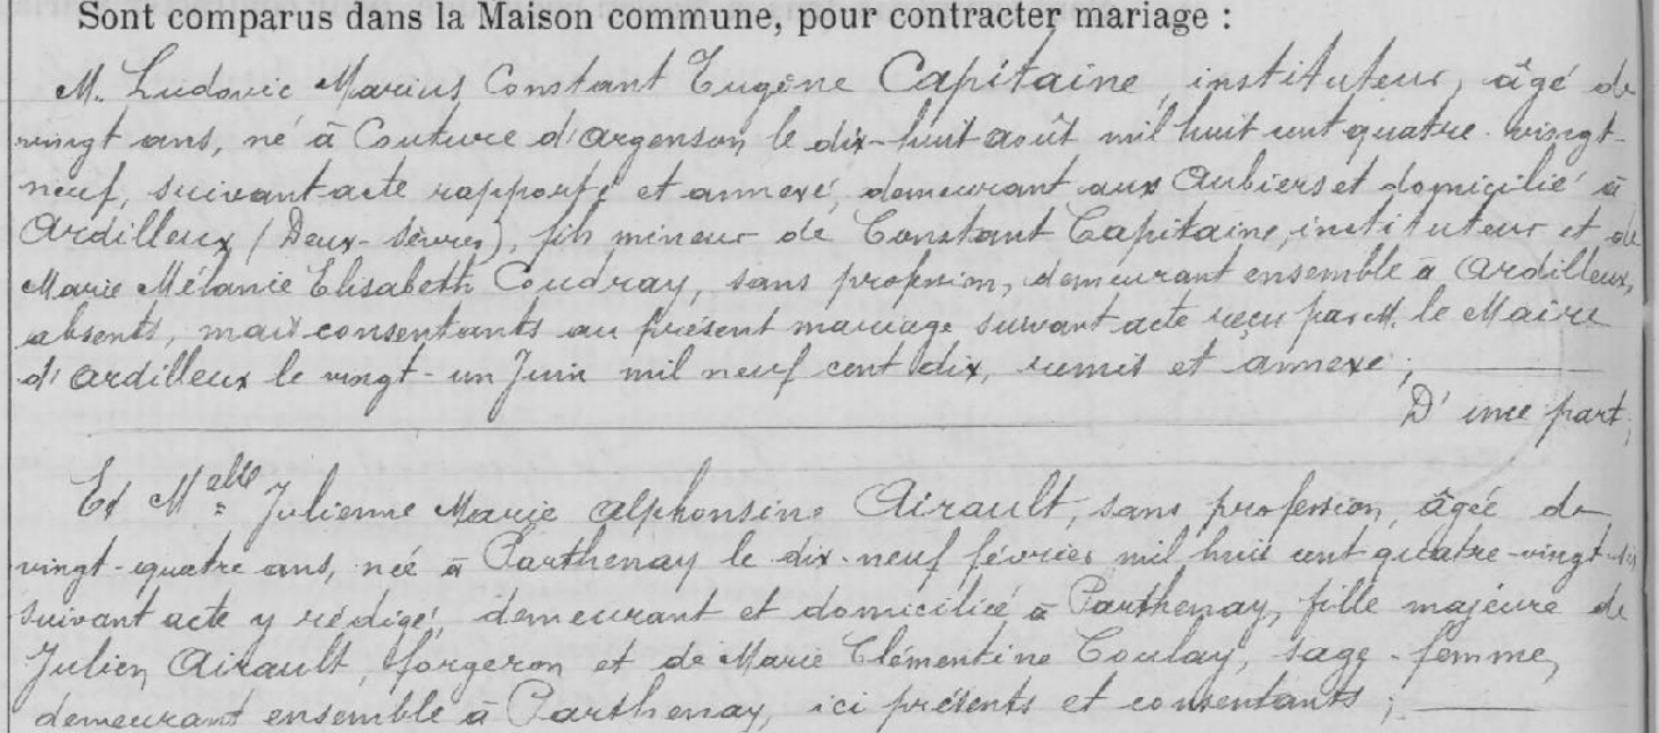 Sont comparus dans la Maison commune, pour contracter mariage :
M. Ludovic Marius Constant Eugène Capitaine, instituteur, âgé de
vingt ans, né à Couture d'Argenson le dix-huit août mil huit cent quatre-vingt-
neuf, suivant acte rapporté et annexé, demeurant aux Aubiers et domicilié à
Ardilleux (Deux-Sèvres), fils mineur de Constant Capitaine, instituteur et de
Marie Mélanie Elisabeth Coudray, sans profession, demeurant ensemble à Ardilleux,
absents, mais consentants au présent mariage suivant acte reçu par M. le Maire
d'Ardilleux le vingt-un Juin mil neuf cent dix, remis et annexé ;
D'une part,
Et Melle Julienne Marie Alphonsine Airault, sans profession, âgée de
vingt-quatre ans, née à Parthenay le dix-neuf février mil huit cent quatre-vingt-six
suivant acte y rédigé, demeurant et domiciliée à Parthenay, fille majeure de
Julien Airault, forgeron et de Marie Clémentine Coulay, sage-femme,
demeurant ensemble à Parthenay, ici présents et consentants ;